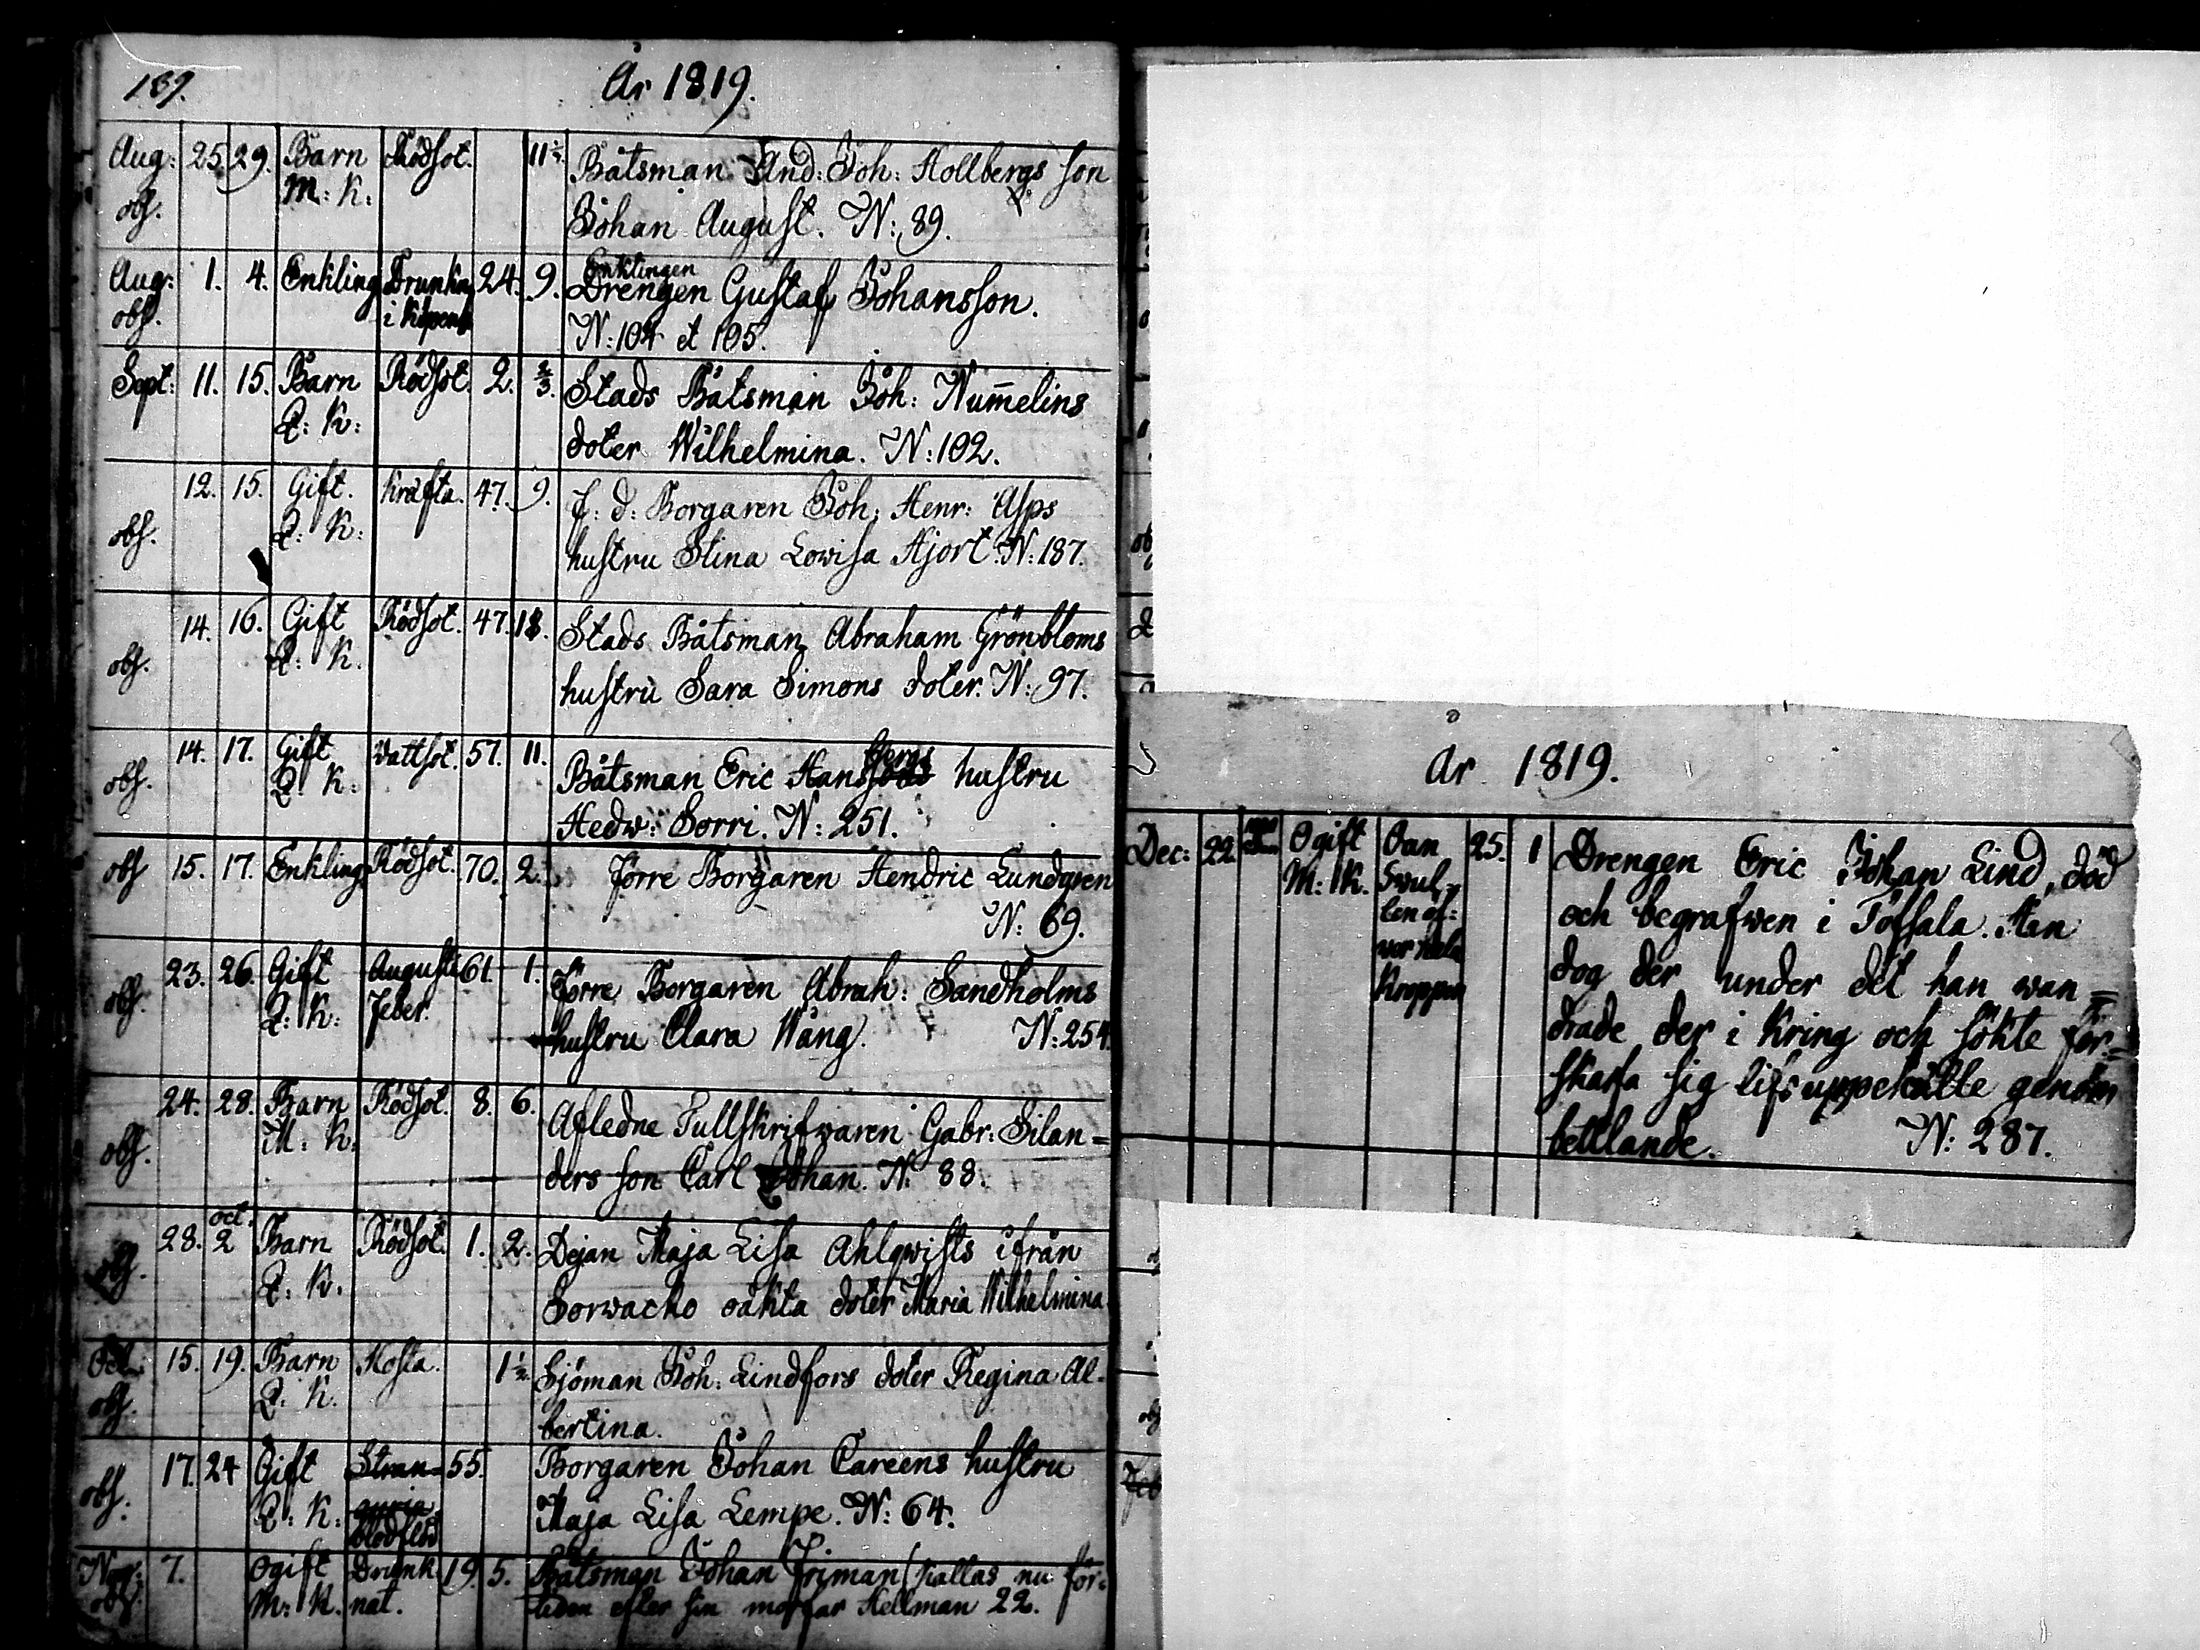 189.
År 1819.
Aug: 25. 29. Barn Rödsot. 11½ Båtsman And: Joh: Hollbergs son
obs. M: K: Johan August. N: 89.
Aug: 1. 4. Enkling Drunkn 24. 9. Enklingen
Drengen Gustaf Johansson.
obs. i Köpenh N: 104 et 105.
Sept: 11. 15. Barn Rödsot. 2. ⅔. Stads Båtsman Joh: Num̄elins
Q: K: doter Wilhelmina. N: 102.
12. 15. Gift. Kräfta. 47. 9. f: d: Borgaren Joh: Henr: Asps
obs. Q: K: hustru Stina Lowisa Hjort. N: 187.
14. 16. Gift Rödsot. 47. Stads Båtsman Abraham Grönbloms
obs. Q: K. hustru Sara Simons doter. N: 97.
14. 17. Gift Vattsot. 57. 11. Båtsman Eric hustru
obs. Q: K: Hedw: Sorri. N: 251.
obs 15. 17. Enkling Rödsot. 70. 2. förre Borgaren Hendric Lundgren
N: 69.
23. 26. Gift Augusti 61. 1. förre Borgaren Abrah: Sandholms
obs. Q: K: feber. hustru Clara Wång. N: 254.
24. 28. Barn Rödsot. 8. 6. Afledne Tullskrifwaren Gabr: Silan=
obs. M: K: ders son Carl Johan. N: 88.
oct.
28. 2 Barn Rödsot. 1. 2. Dejan Maja Lisa Ahlqwists ifrån
obs. Q: K. Sorwacko oäkta doter Maria Wilhelmina.
Oct. 15. 19. Barn Hosta. 1½ Sjöman Joh: Lindfors doter Regina Al-
obs. Q: K. bertina.
17. 24 Gift Stran= 55. Borgaren Johan Careens hustru
obs. Q: K: gurie Maja Lisa Lempe. N: 64.
blodflod
Nov: 7. Ogift Drunk 19. 5. Båtsman Johan Friman (kallas nu för=
obs. M: K. nat. tiden efter sin morfar Hellman 22.
År 1819.
Dec: 22 Ogift Oan 25. 1 Drengen Eric Johan Lind, död
M: K. Swul= och begrafwen i Töfsala. Han
len öf= dog der under det han wan=
wer hela drade der i kring och sökte för=
kroppen skaffa sig lifsuppehälle genom
bettlande. N: 287.